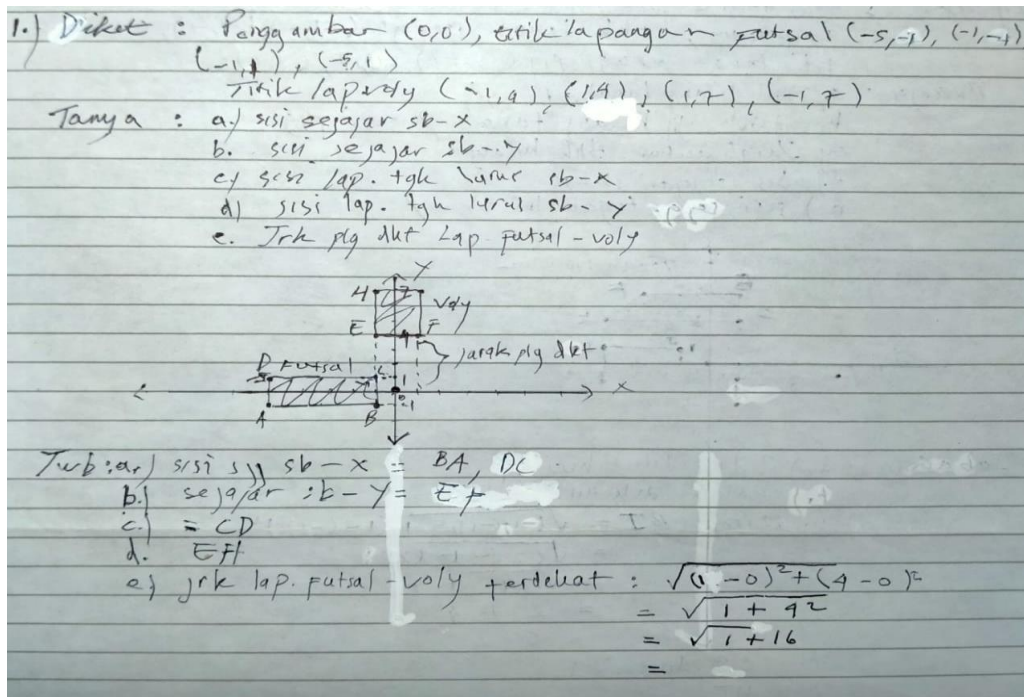 1.) Diket : Penggambar (0,0), titik lapangan futsal (-5,-1), (-1,-1)
(-1,1), (-5,1)
Titik lap voly (-1,4), (1,4), (1,7), (-1,7)
Tanya : a.) sisi sejajar sb-x
b. sisi sejajar sb-y
c) sisi lap. tgk lurus sb-x
d) sisi lap. tgk lurus sb-y
e. Jrk plg dkt Lap futsal - voly
Y
H 7 Voly
E 4 F
jarak plg dkt
D Futsal C 1 X
A B -1
Jwb : a.) sisi sjj sb-x = BA, DC
b.) sejajar sb-y = EF
c.) = CD
d. EH
e) jrk lap. futsal - voly terdekat : √(1-0)²+(4-0)²
= √1+4²
= √1+16
=